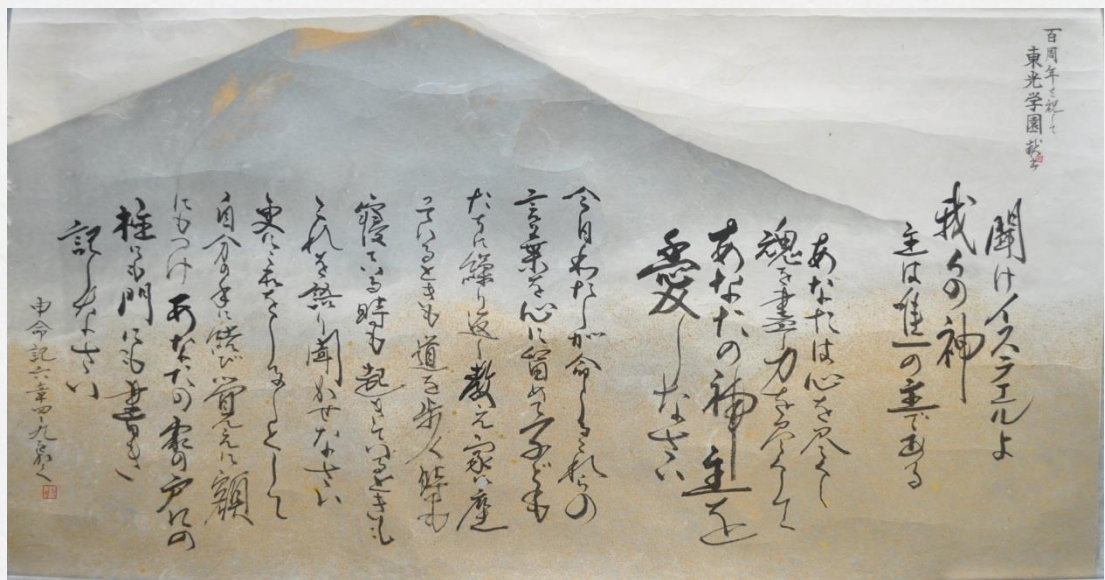 百周年を祝して
東光学園
聞けイスラエルよ
我らの神
主は唯一の主である
あなたは心を尽くし
魂を盡し力を尽くして
あなたの神主を
愛しなさい
今日わたしが命じるこれらの
言葉を心に留めて子ども
たちに繰り返し教え家に座
っているときも道を歩く時も
寝ている時も起きているときも
これを語り聞かせなさい
更にこれをしるしとして
自分の手に結び覚えに額
にもつけあなたの家の戸口の
柱にも門にも書き
記しなさい
申命記六章四 九